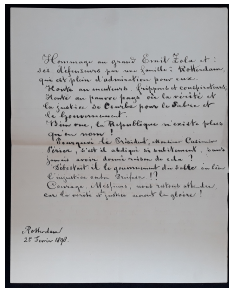 Hommage au grand Emil Zola et
ses défenseurs par une famille à Rotterdam
qui est plein d'admiration pour eux.
Honte au menteurs fripons et conspirateurs,
Honte au pauvre pays où la vérité et
la justice de courbe pour le Sabre et
le Gouvernement.
Bien vue, la République n'existe plus
qu'en nom!
Pourquoi le Président, Monsieur Casimir
Perier, s'est-il abdiqué si subitement,
jamais avoir donné raison de cela!
Détestait-il le gouvernement du sabre ou bien
l'injustice contre Dreyfus!!
Courage Messieurs, nous
car la vérité et justice aura la gloire!
Rotterdam
25 Fevrier 1898.